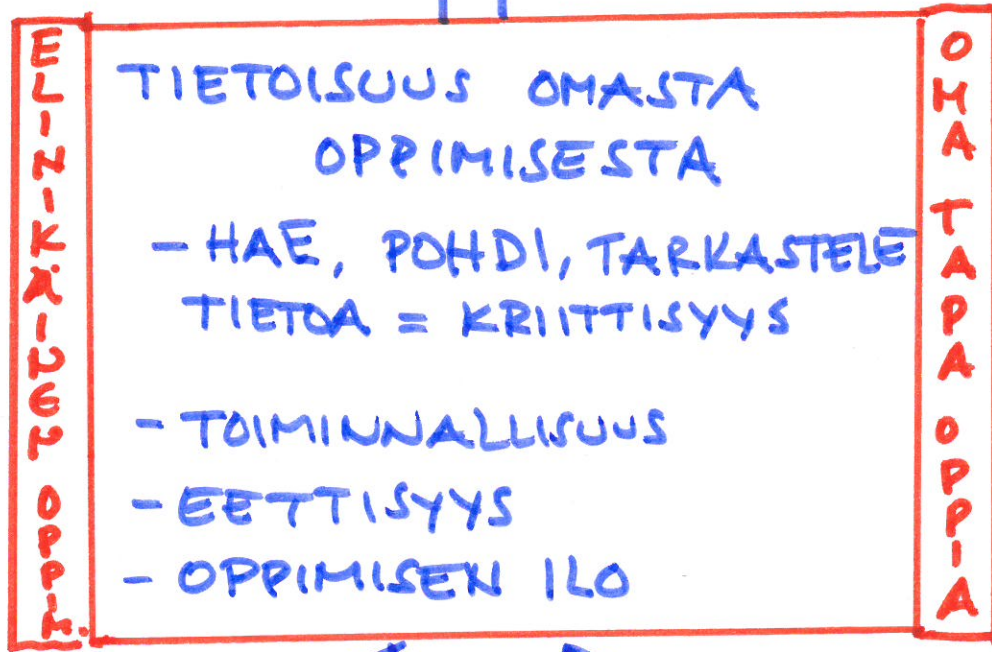 ELINIKÄINEN OPPIM.
TIETOISUUS OMASTA
OPPIMISESTA
- HAE, POHDI, TARKASTELE
TIETOA = KRIITTISYYS
- TOIMINNALLISUUS
- EETTISYYS
- OPPIMISEN ILO
OMA TAPA OPPIA